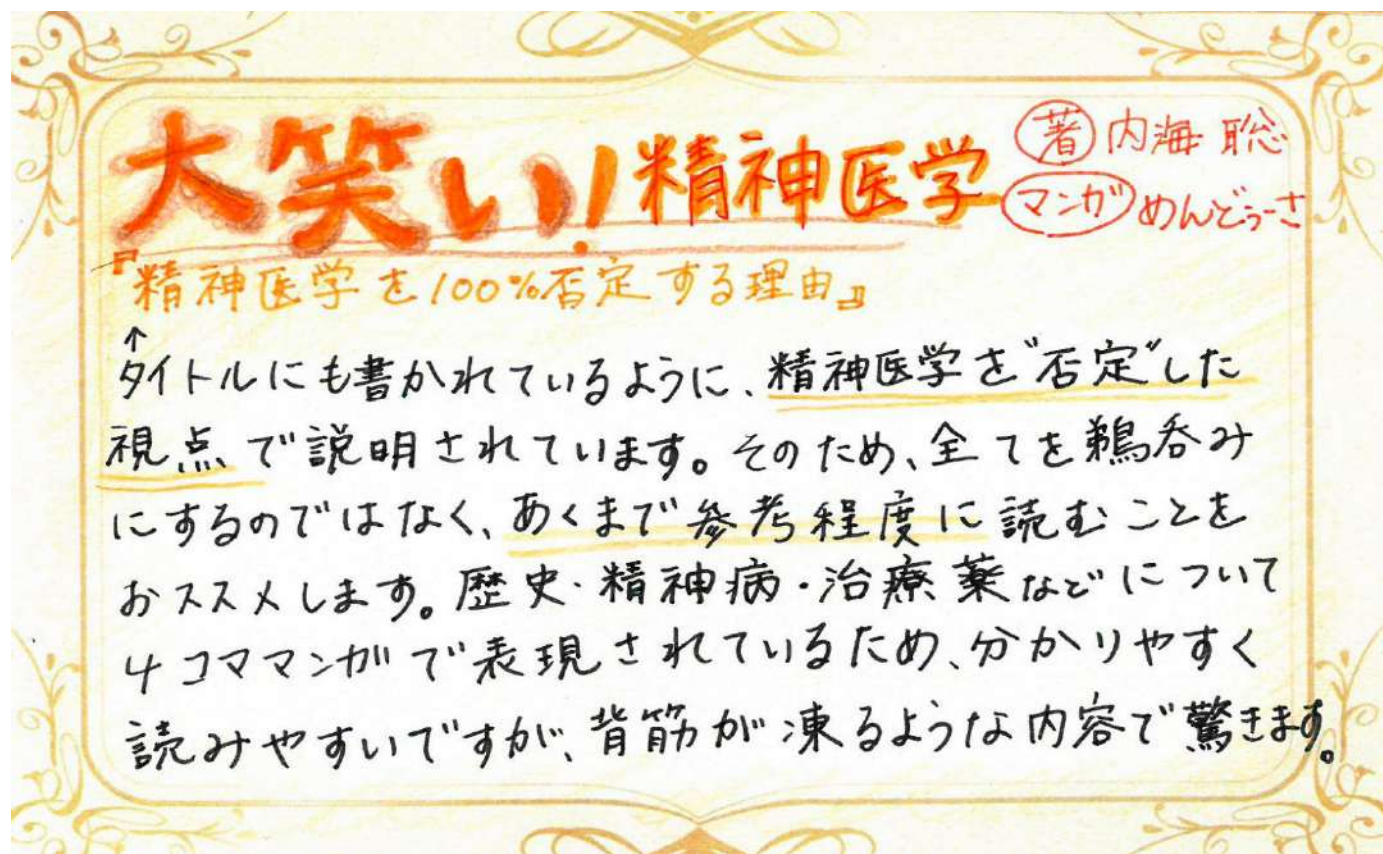 大笑い!精神医学
著 内海 聡
マンガ めんどぅーさ
『精神医学を100%否定する理由』
↑
タイトルにも書かれているように、精神医学を"否定"した
視点で説明されています。そのため、全てを鵜呑み
にするのではなく、あくまで参考程度に読むことを
おススメします。歴史・精神病・治療薬などについて
4コママンガで表現されているため、分かりやすく
読みやすいですが、背筋が凍るような内容で驚きます。